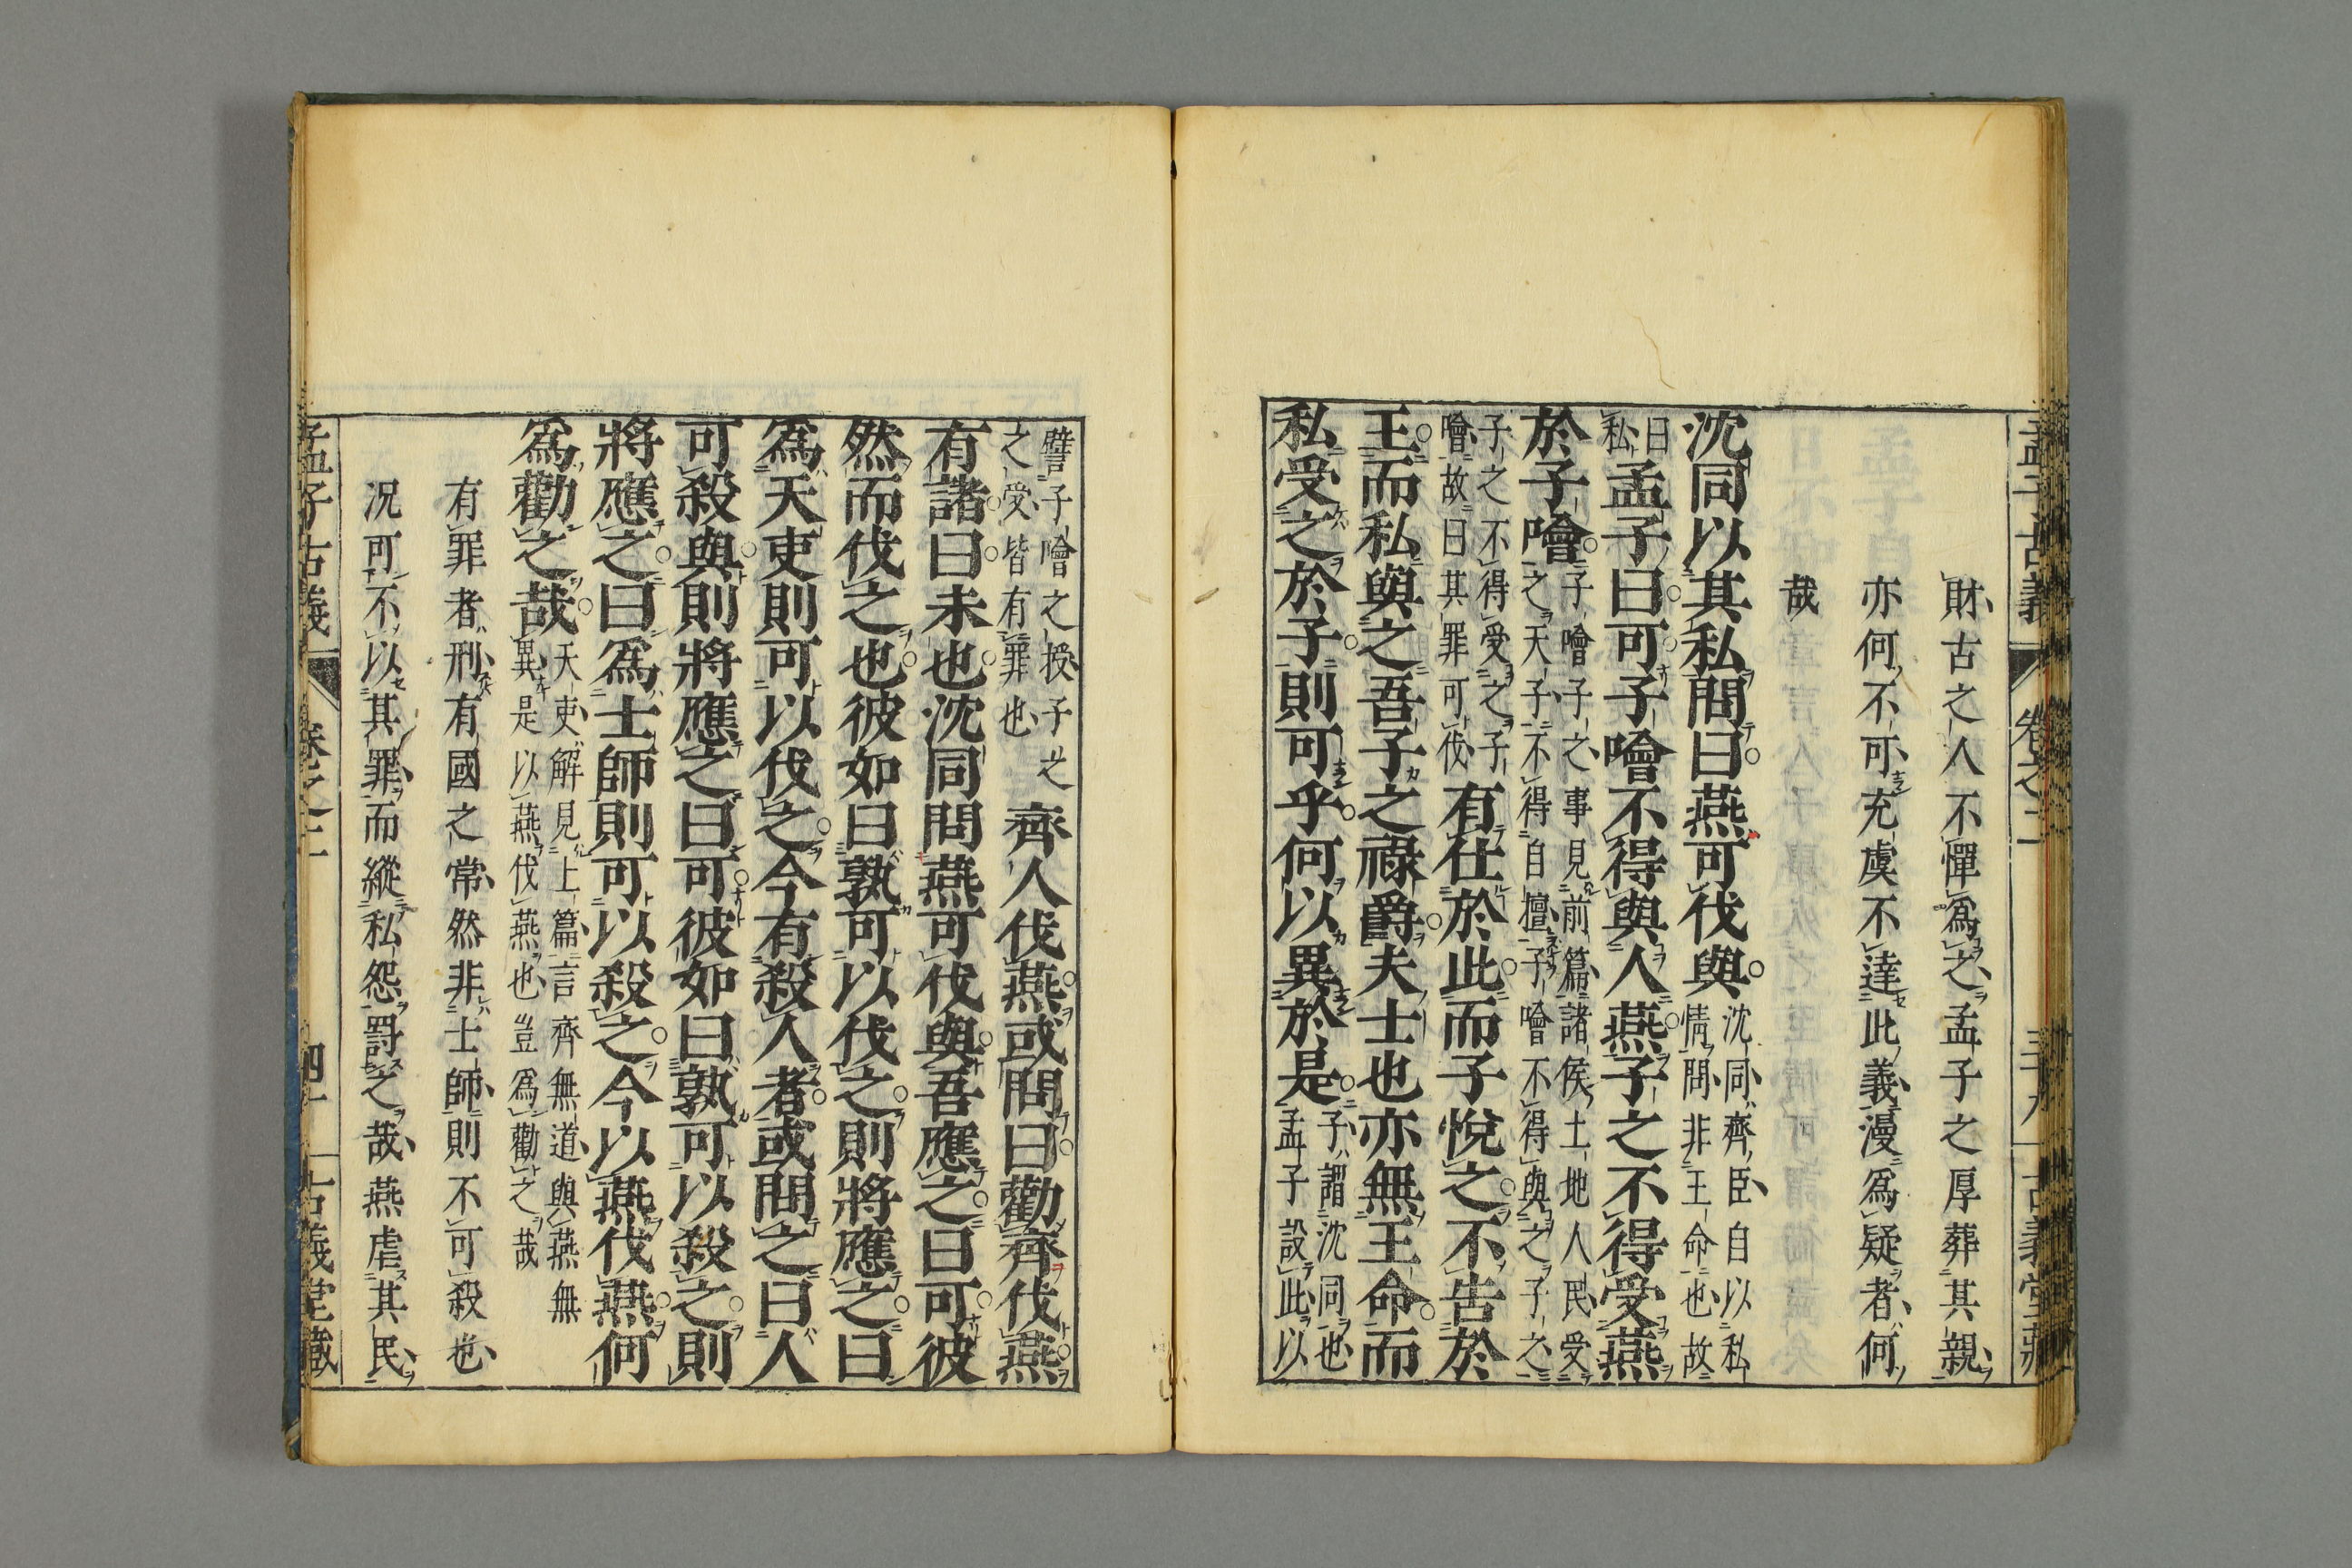 孟子古義 卷之二 三十九 古義堂藏
財古之人不憚爲之孟子之厚葬其親
亦何不可充虞不達此義漫爲疑者何
哉
沈同以其私問曰燕可伐與沈同齊臣自以私情問非王命也故
曰私孟子曰可子噲不得與人燕子之不得受燕
於子噲子噲子之事見前篇諸侯土地人民受之天子不得自擅子噲不得與之子之
子之不得受之子噲故曰其罪可伐有仕於此而子悅之不告於
王而私與之吾子之祿爵夫士也亦無王命而
私受之於子則可乎何以異於是子謂沈同也孟子設此以
譬子噲之授子之之受皆有罪也齊人伐燕或問曰勸齊伐燕
有諸曰未也沈同問燕可伐與吾應之曰可彼
然而伐之也彼如曰孰可以伐之則將應之曰
爲天吏則可以伐之今有殺人者或問之曰人
可殺與則將應之曰可彼如曰孰可以殺之則
將應之曰爲士師則可以殺之今以燕伐燕何
爲勸之哉天吏解見上篇言齊無道與燕無異是以燕伐燕也豈爲勸之哉
有罪者刑有國之常然非士師則不可殺也
況可不以其罪而縱私怨罰之哉燕虐其民
孟子古義 卷之二 四十 古義堂藏